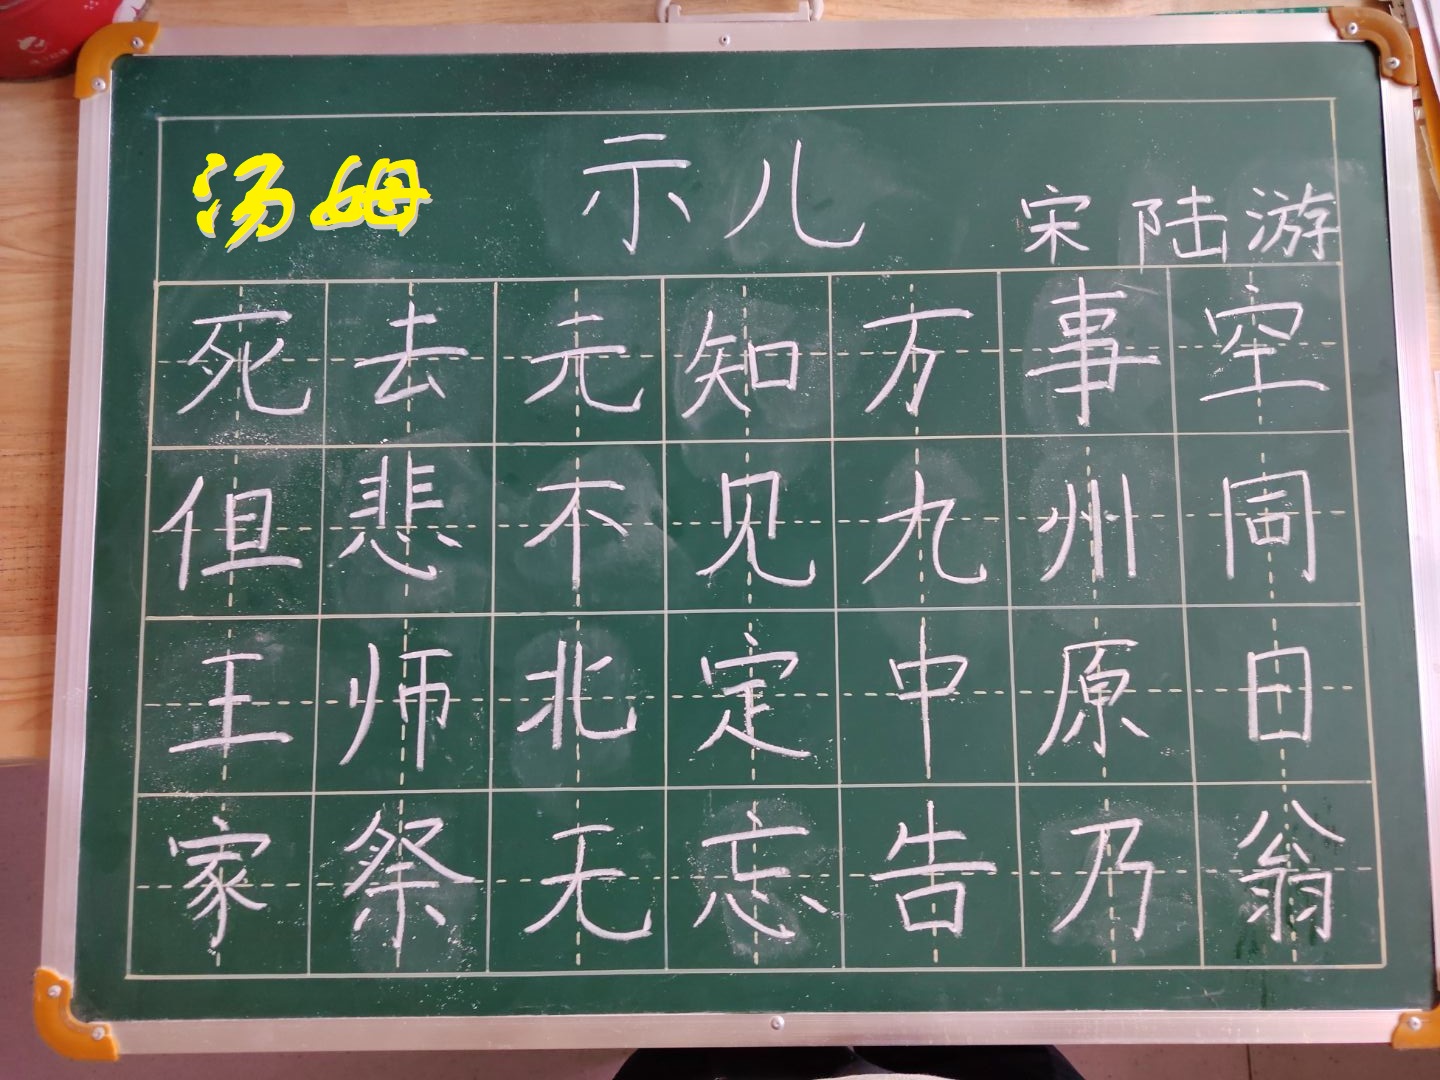 汤姆
示儿
宋 陆游
死去元知万事空
但悲不见九州同
王师北定中原日
家祭无忘告乃翁